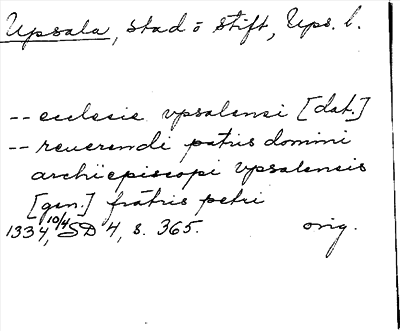 Upsala, stad o stift, Ups. l.
-- ecclesie vpsalensi [dat.]
-- reuerendi patris domini
archiepiscopi vpsalensis
[gen.] fratris petri
1334, 10/4 SD 4, s. 365. orig.